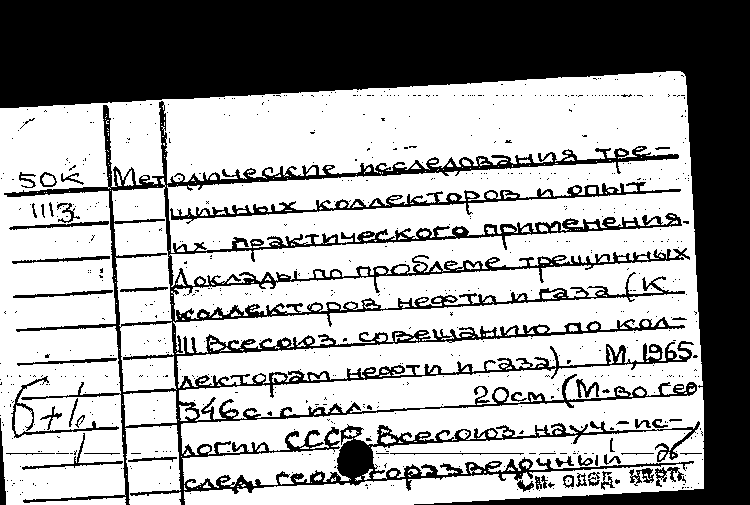 50К Методические исследования тре-
1113 щинных коллекторов и опыт
их практического применения.
Доклады по проблеме трещинных
коллекторов нефти и газа (К
III Всесоюз. совещанию по кол-
лекторам нефти и газа). М, 1965.
346с. с илл. 20см. (М-во гео
логии СССР. Всесоюз. науч.-ис-
след. геологоразведочный
См. след. карт.